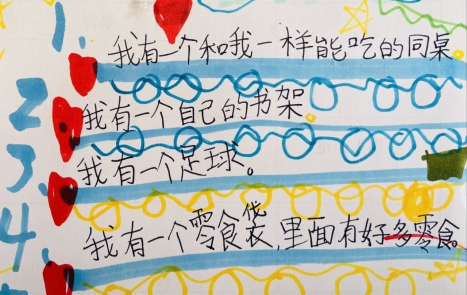 1、我有一个和我一样能吃的同桌。
2、我有一个自己的书架。
3、我有一个足球。
4、我有一个零食袋,里面有好多零食。